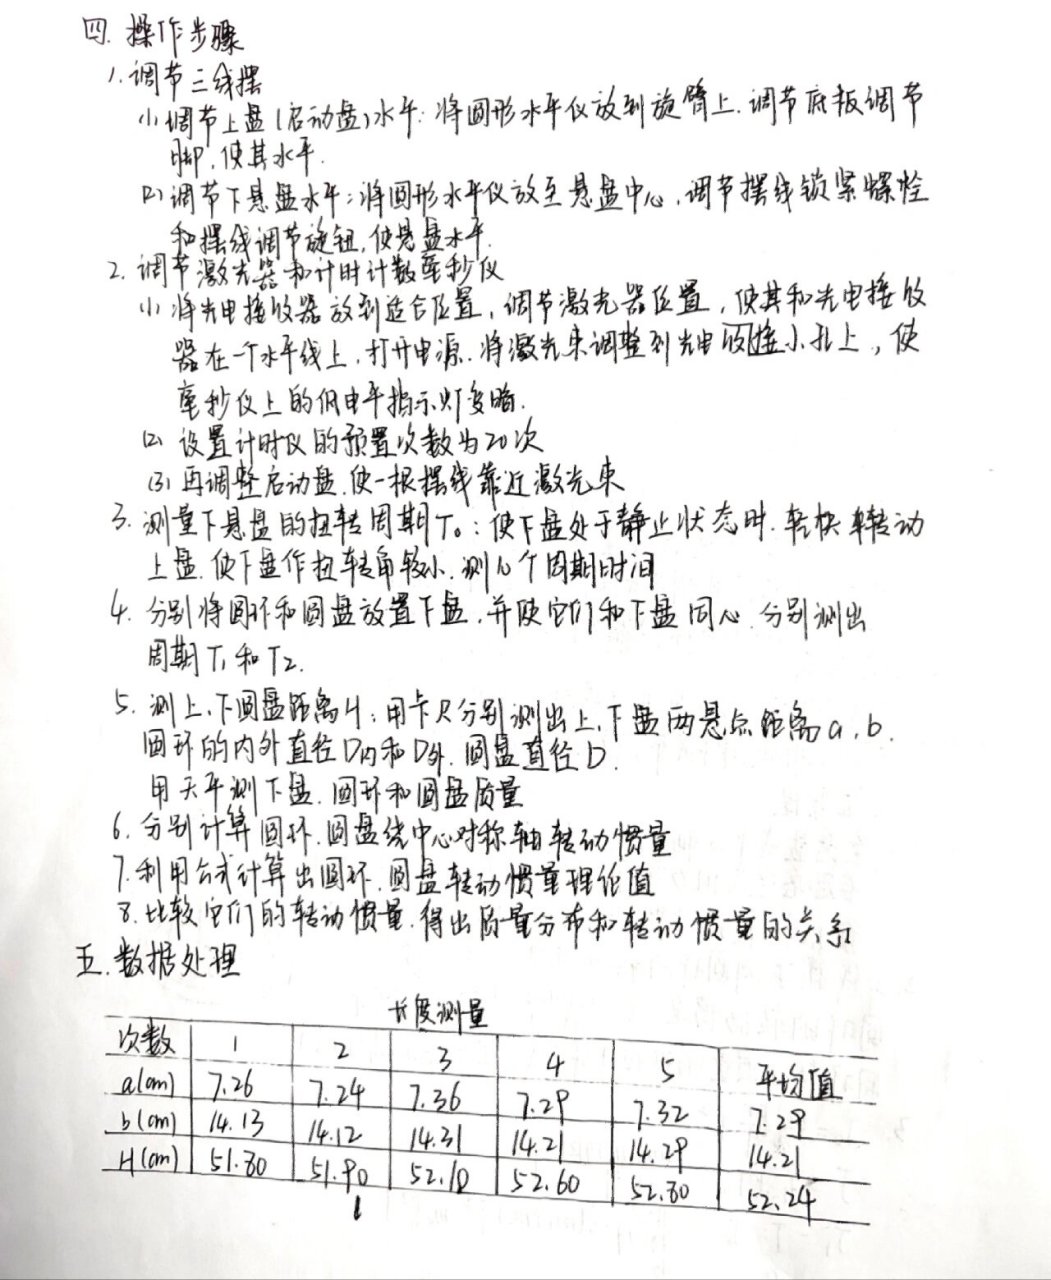 四. 操作步骤
1. 调节三线摆
(1) 调节上盘(启动盘)水平: 将圆形水平仪放到旋臂上. 调节底板调节
脚, 使其水平.
(2) 调节下悬盘水平: 将圆形水平仪放至悬盘中心, 调节摆线锁紧螺栓
和摆线调节旋钮, 使悬盘水平.
2. 调节激光器和计时计数毫秒仪
(1) 将光电接收器放到适合位置, 调节激光器位置, 使其和光电接收
器在一个水平线上, 打开电源. 将激光束调整到光电接收小孔上, 使
毫秒仪上的低电平指示灯变暗.
(2) 设置计时仪的预置次数为20次
(3) 再调整启动盘, 使一根摆线靠近激光束
3. 测量下悬盘的扭转周期T₀: 使下盘处于静止状态时. 轻快转动
上盘. 使下盘作扭转角较小. 测10个周期时间
4. 分别将圆环和圆盘放置下盘, 并使它们和下盘同心. 分别测出
周期T₁和T₂.
5. 测上、下圆盘距离H; 用卡尺分别测出上、下盘两悬点距离a, b.
圆环的内外直径D内和D外. 圆盘直径D.
用天平测下盘. 圆环和圆盘质量
6. 分别计算圆环. 圆盘绕中心对称轴转动惯量
7. 利用公式计算出圆环. 圆盘转动惯量理论值
8. 比较它们的转动惯量. 得出质量分布和转动惯量的关系
五. 数据处理
长度测量
次数 1 2 3 4 5 平均值
a(cm) 7.26 7.24 7.36 7.29 7.32 7.29
b(cm) 14.13 14.12 14.31 14.21 14.29 14.21
H(cm) 51.80 51.90 52.10 52.60 52.80 52.24